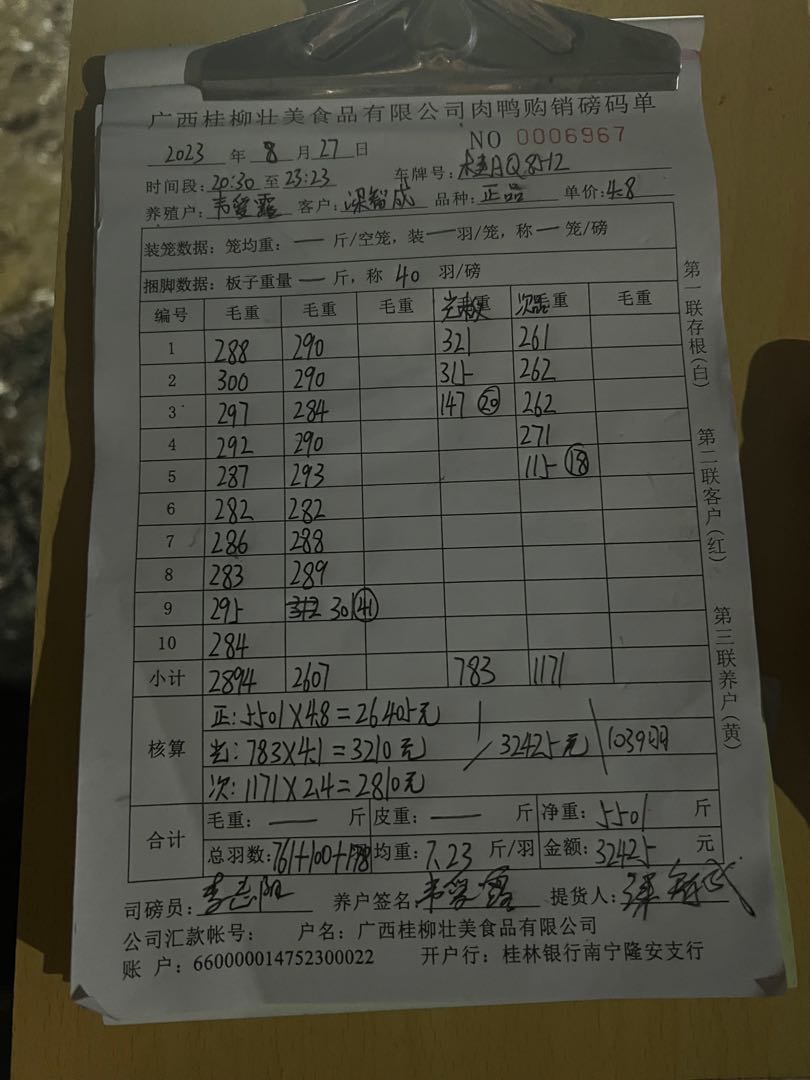 广西桂柳壮美食品有限公司肉鸭购销磅码单
NO 0006967
2023 年 8 月 27 日
时间段: 20:30 至 23:23 车牌号: 桂AQ8512
养殖户: 韦爱露 客户: 梁智成 品种: 正品 单价: 4.8
装笼数据: 笼均重: — 斤/空笼, 装 — 羽/笼, 称 — 笼/磅
捆脚数据: 板子重量 — 斤, 称 40 羽/磅
编号 毛重 毛重 毛重 重 次品重 毛重
1 288 290 321 261
2 300 290 315 262
3 297 284 147 ⑳ 262
4 292 290 271
5 287 293 115 ⑱
6 282 282
7 286 288
8 283 289
9 295 312 301 ㊶
10 284
小计 2894 2607 783 1171
核算
正: 5501×4.8=26405元
783×4.1=3210元 / 32425元 1039羽
次: 1171×2.4=2810元
合计
毛重: — 斤 皮重: — 斤 净重: 5501 斤
总羽数: 761+100+178 均重: 7.23 斤/羽 金额: 32425 元
司磅员: 养户签名 韦爱露 提货人:
公司汇款帐号: 户名: 广西桂柳壮美食品有限公司
账 户: 660000014752300022 开户行: 桂林银行南宁隆安支行
第一联存根(白)
第二联客户(红)
第三联养户(黄)